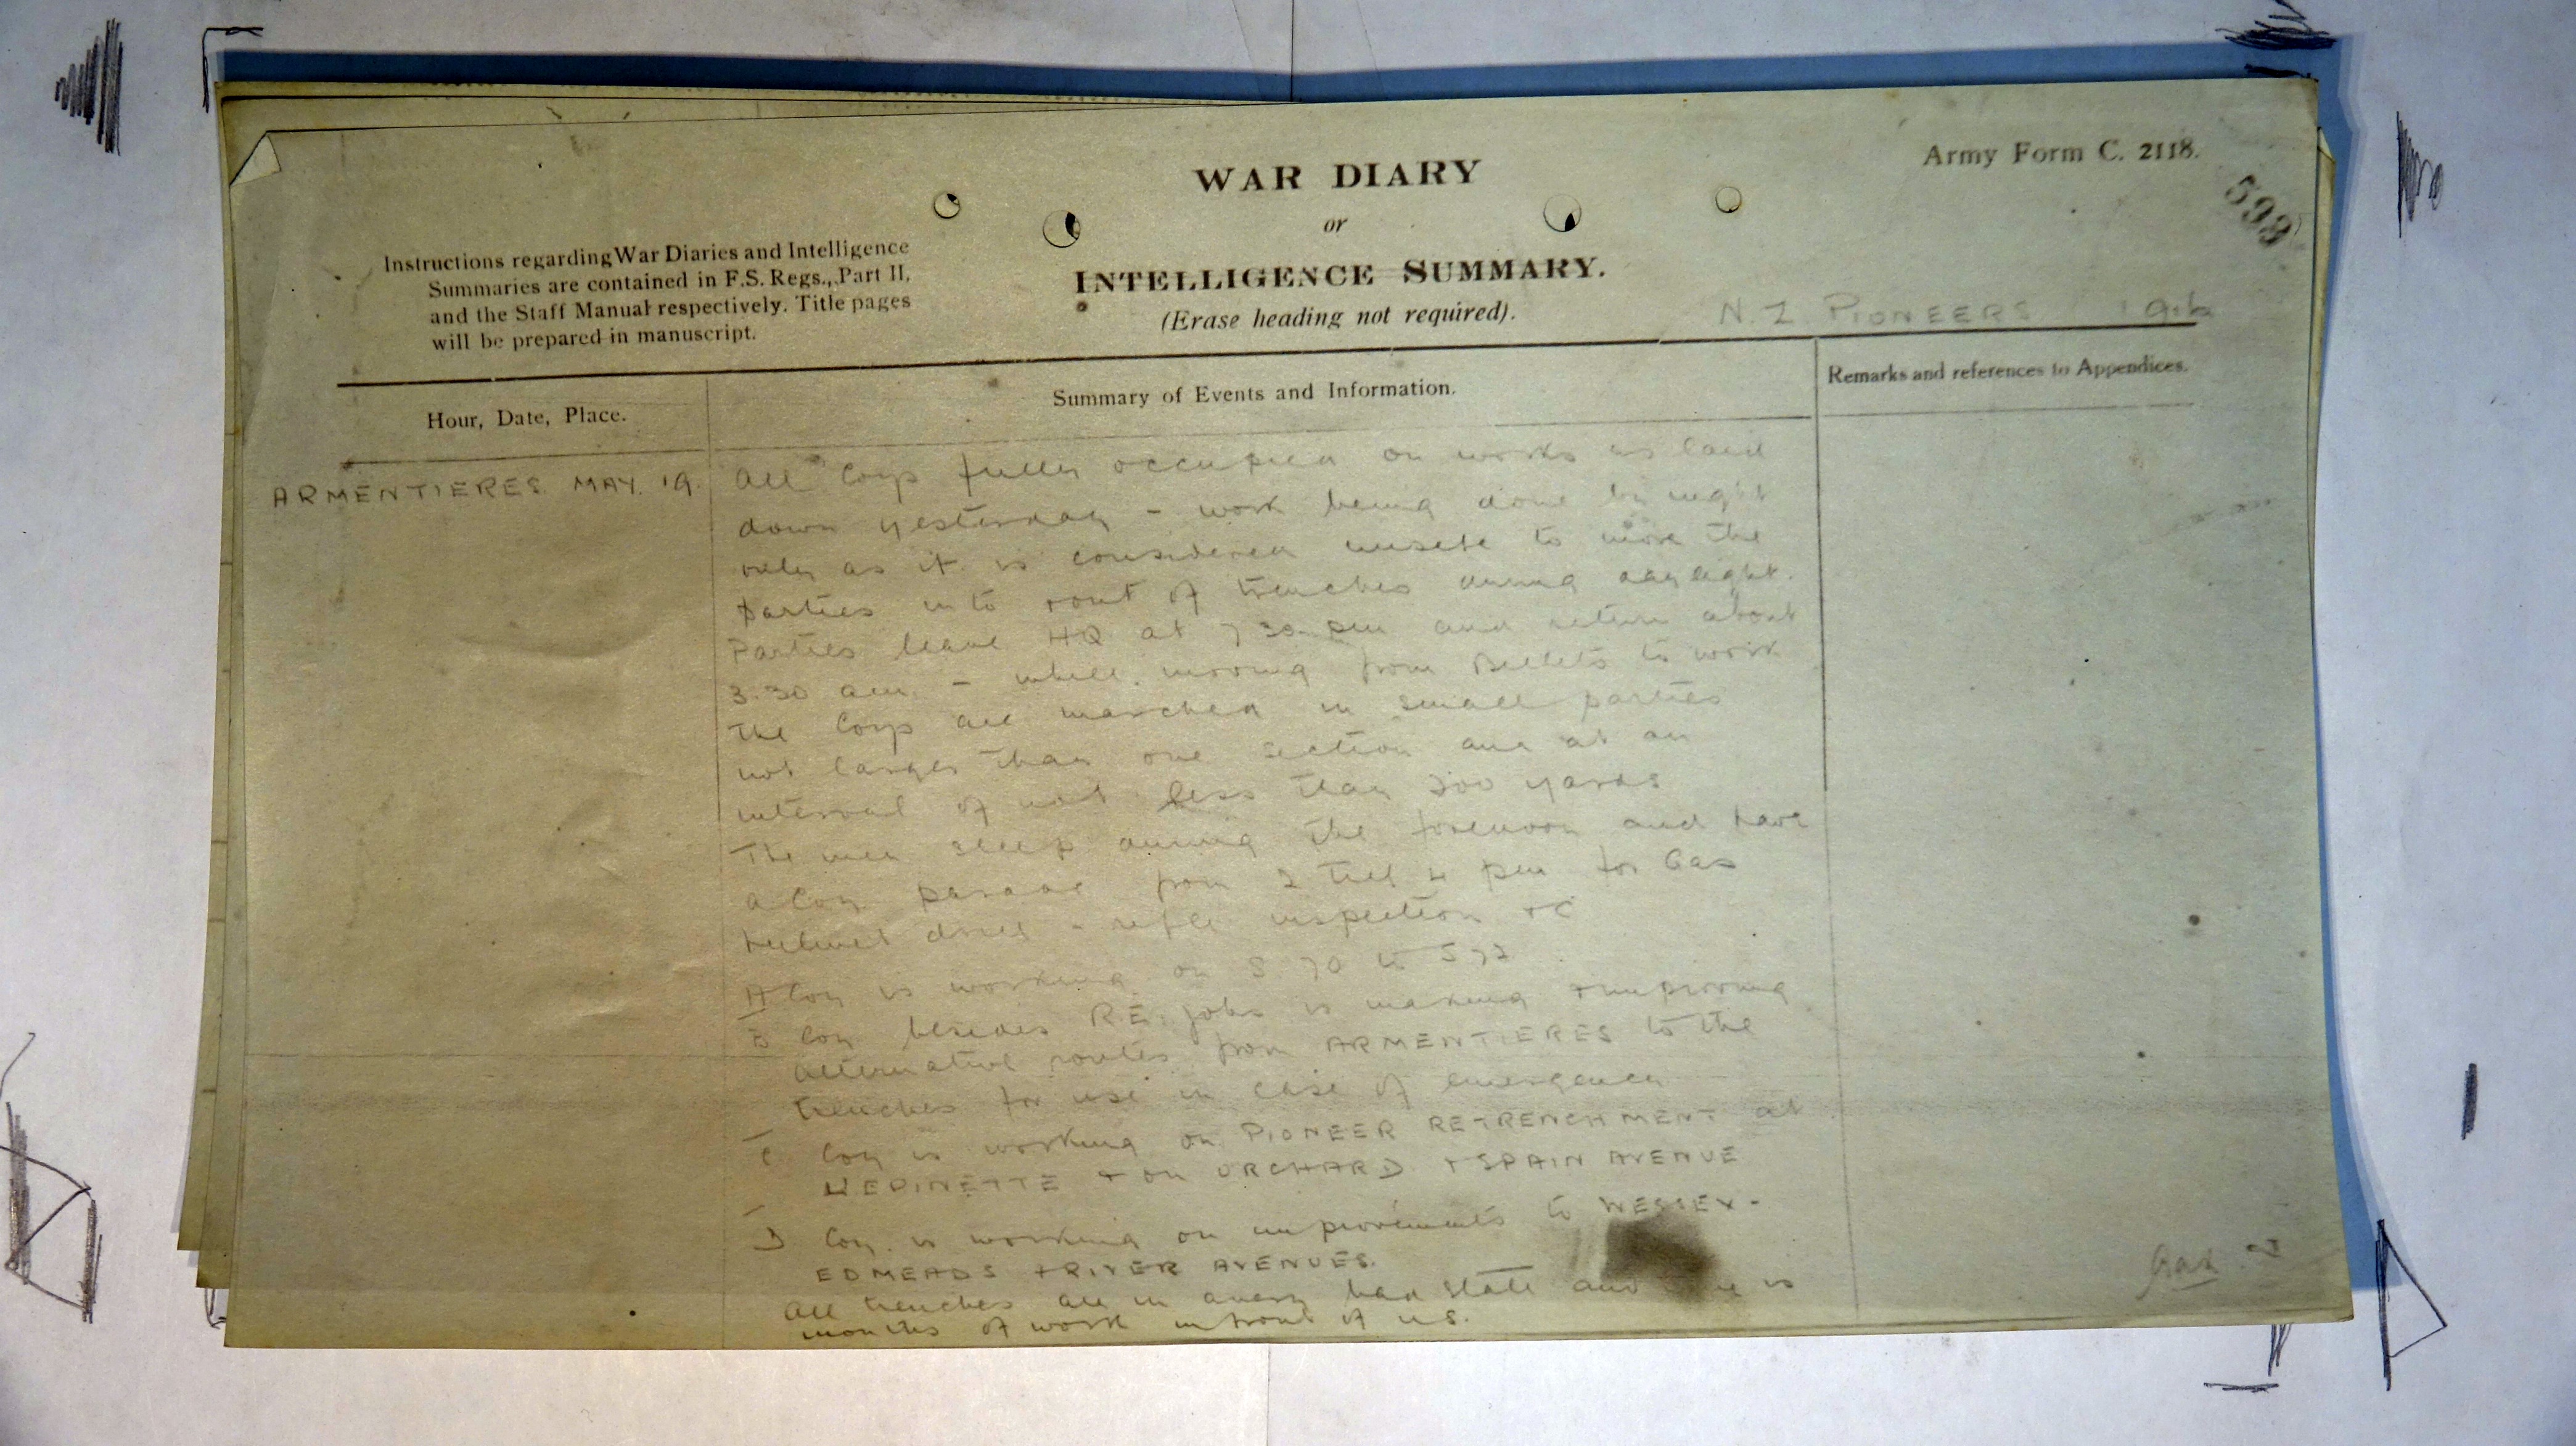 Army Form C. 2118.
599
WAR DIARY
or
INTELLIGENCE SUMMARY.
(Erase heading not required).
Instructions regarding War Diaries and Intelligence
Summaries are contained in F.S. Regs., Part II,
and the Staff Manual respectively. Title pages
will be prepared in manuscript.
N.Z. PIONEERS
Hour, Date, Place.
Summary of Events and Information.
Remarks and references to Appendices.
ARMENTIERES. MAY. 19.
All Coys fully occupied on works as laid
down yesterday - work being done by night
only as it is considered unsafe to move the
parties into & out of trenches during daylight.
Parties leave HQ at 7 30 pm and return about
3.30 am. - while moving from Billets to work
the Coys are marched in small parties
not larger than one section and at an
interval of not less than 200 yards
The men sleep during the forenoon and have
a Coy parade from 2 till 4 pm for Gas
helmet drill - rifle inspection &c
A Coy is working on S 70 to S 72
B Coy besides R.E. jobs is making & improving
alternative routes from ARMENTIERES to the
trenches for use in case of emergency
C Coy is working on PIONEER RETRENCHMENT at
LEPINETTE & on ORCHARD & SPAIN AVENUE
D Coy is working on improvements to WESSEX -
EDMEADS & RIVER AVENUES.
All trenches are in a very bad state and is
months of work in front of us.